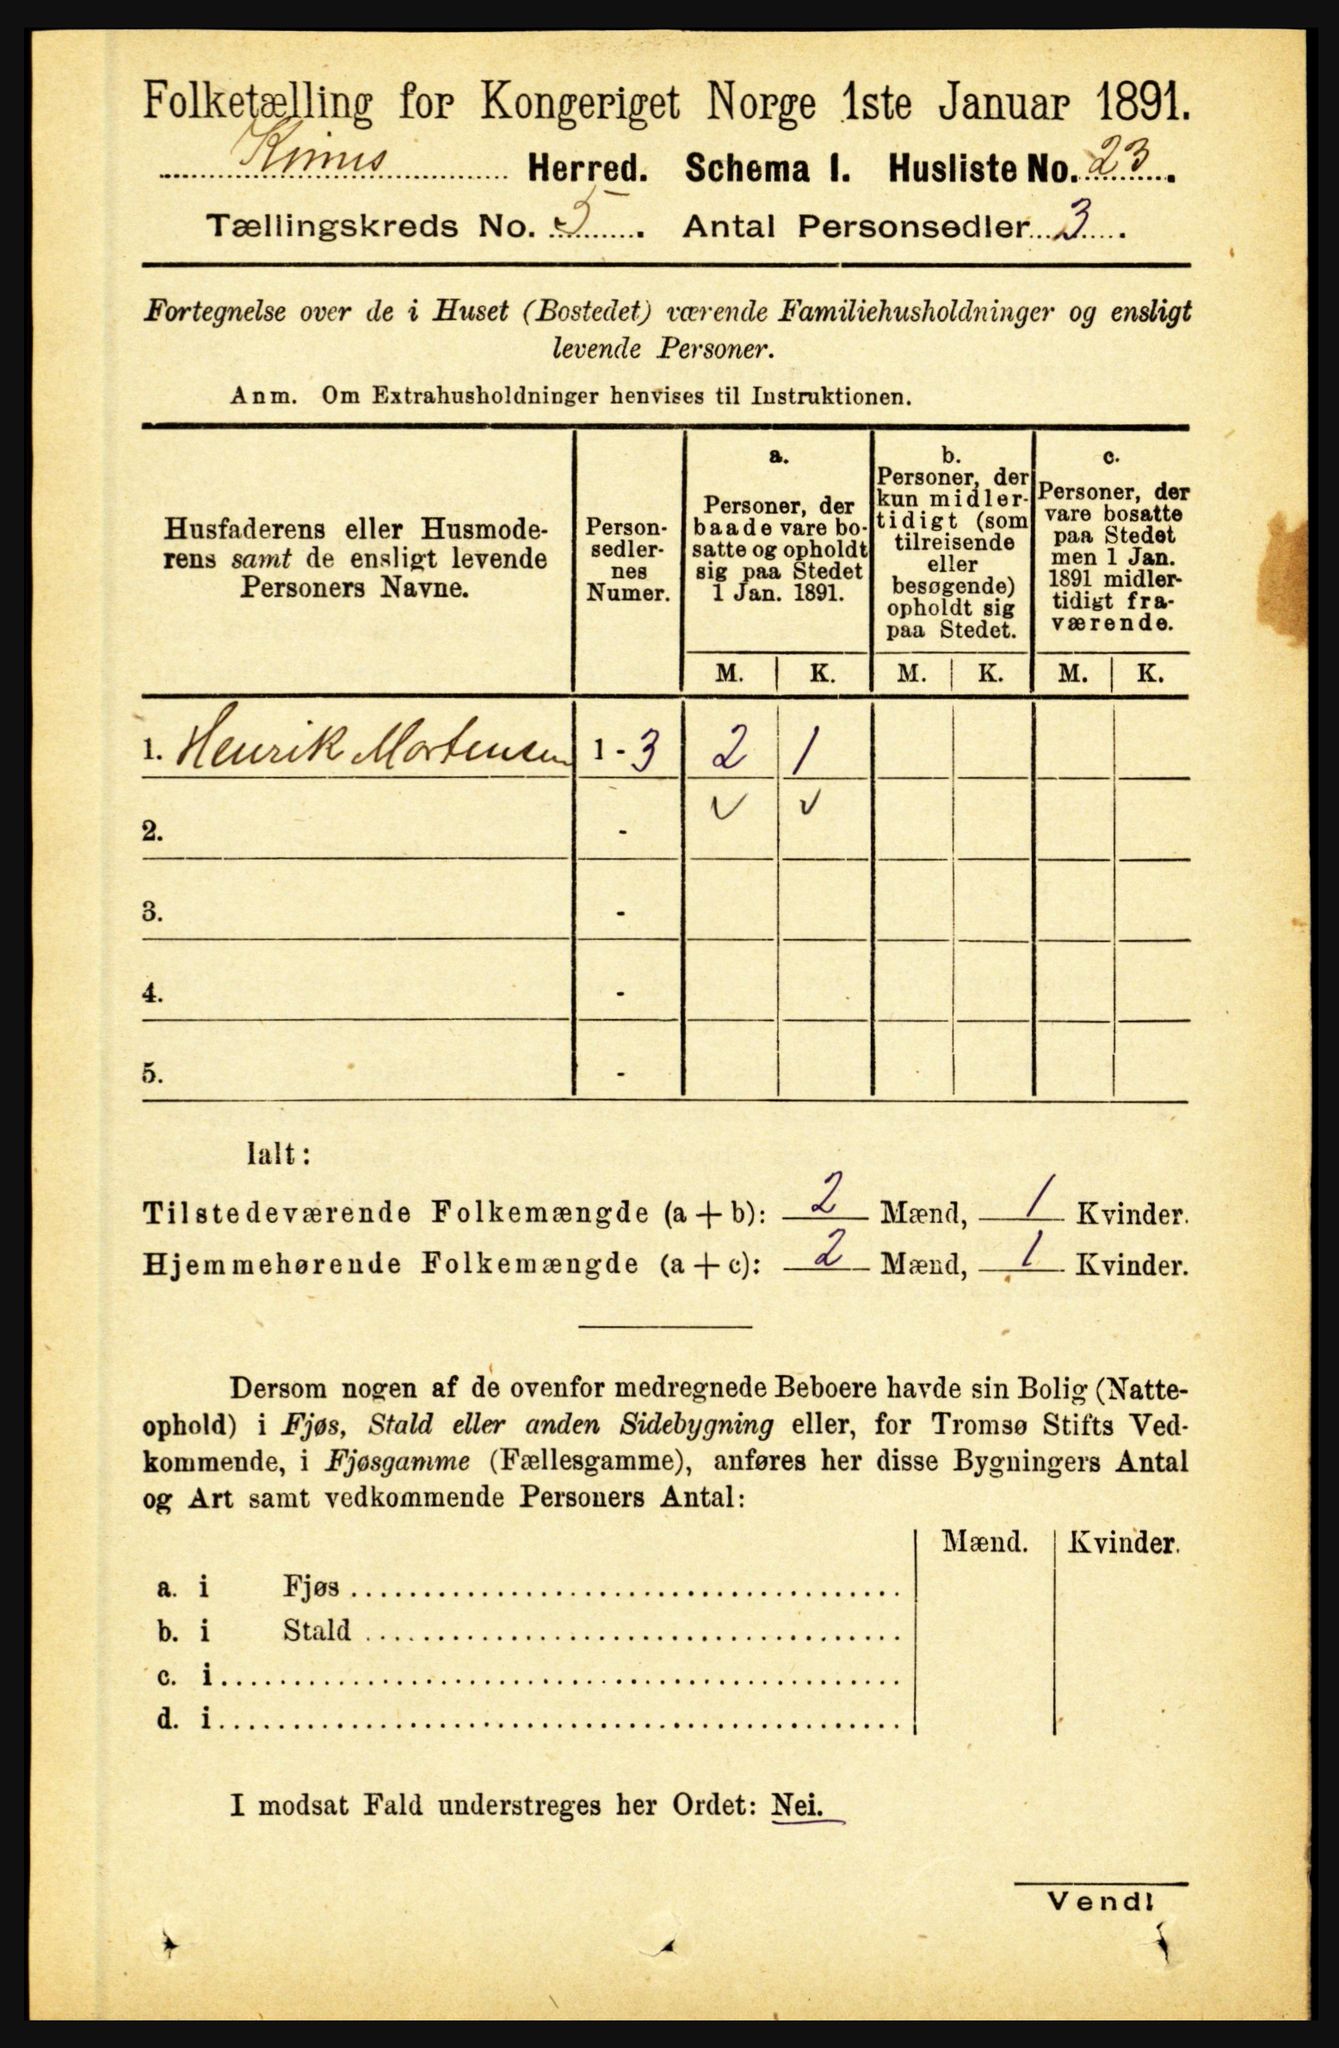 Folketælling for Kongeriget Norge 1ste Januar 1891.
Kinns Herred. Schema I. Husliste No. 23.
Tællingskreds No. 5. Antal Personsedler 3.
Fortegnelse over de i Huset (Bostedet) værende Familiehusholdninger og ensligt
levende Personer.
Anm. Om Extrahusholdninger henvises til Instruktionen.
Husfaderens eller Husmode-
rens samt de ensligt levende
Personers Navne.
Person-
sedler-
nes
Numer.
a.
Personer, der
baade vare bo-
satte og opholdt
sig paa Stedet
1 Jan. 1891.
b.
Personer, der
kun midler-
tidigt (som
tilreisende
eller
besøgende)
opholdt sig
paa Stedet.
c.
Personer, der
vare bosatte
paa Stedet
men 1 Jan.
1891 midler-
tidigt fra-
værende.
M. K. M. K. M. K.
1. Henrik Mortensen 1 - 3 2 1
2. - ✓ ✓
3. -
4. -
5. -
Ialt:
Tilstedeværende Folkemængde (a + b): 2 Mænd, 1 Kvinder.
Hjemmehørende Folkemængde (a + c): 2 Mænd, 1 Kvinder.
Dersom nogen af de ovenfor medregnede Beboere havde sin Bolig (Natte-
ophold) i Fjøs, Stald eller anden Sidebygning eller, for Tromsø Stifts Ved-
kommende, i Fjøsgamme (Fællesgamme), anføres her disse Bygningers Antal
og Art samt vedkommende Personers Antal:
Mænd. Kvinder.
a. i Fjøs
b. i Stald
c. i
d. i
I modsat Fald understreges her Ordet: Nei.
Vend!